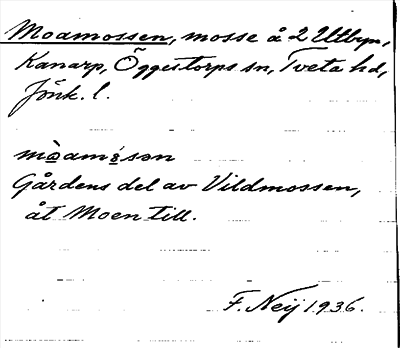 Moamossen, mosse å 2 Utbyn,
Kanarp, Öggestorps sn, Tveta hd,
Jönk. l.
mòamósən
Gårdens del av Vildmossen,
åt Moen till.
F. Neij 1936.